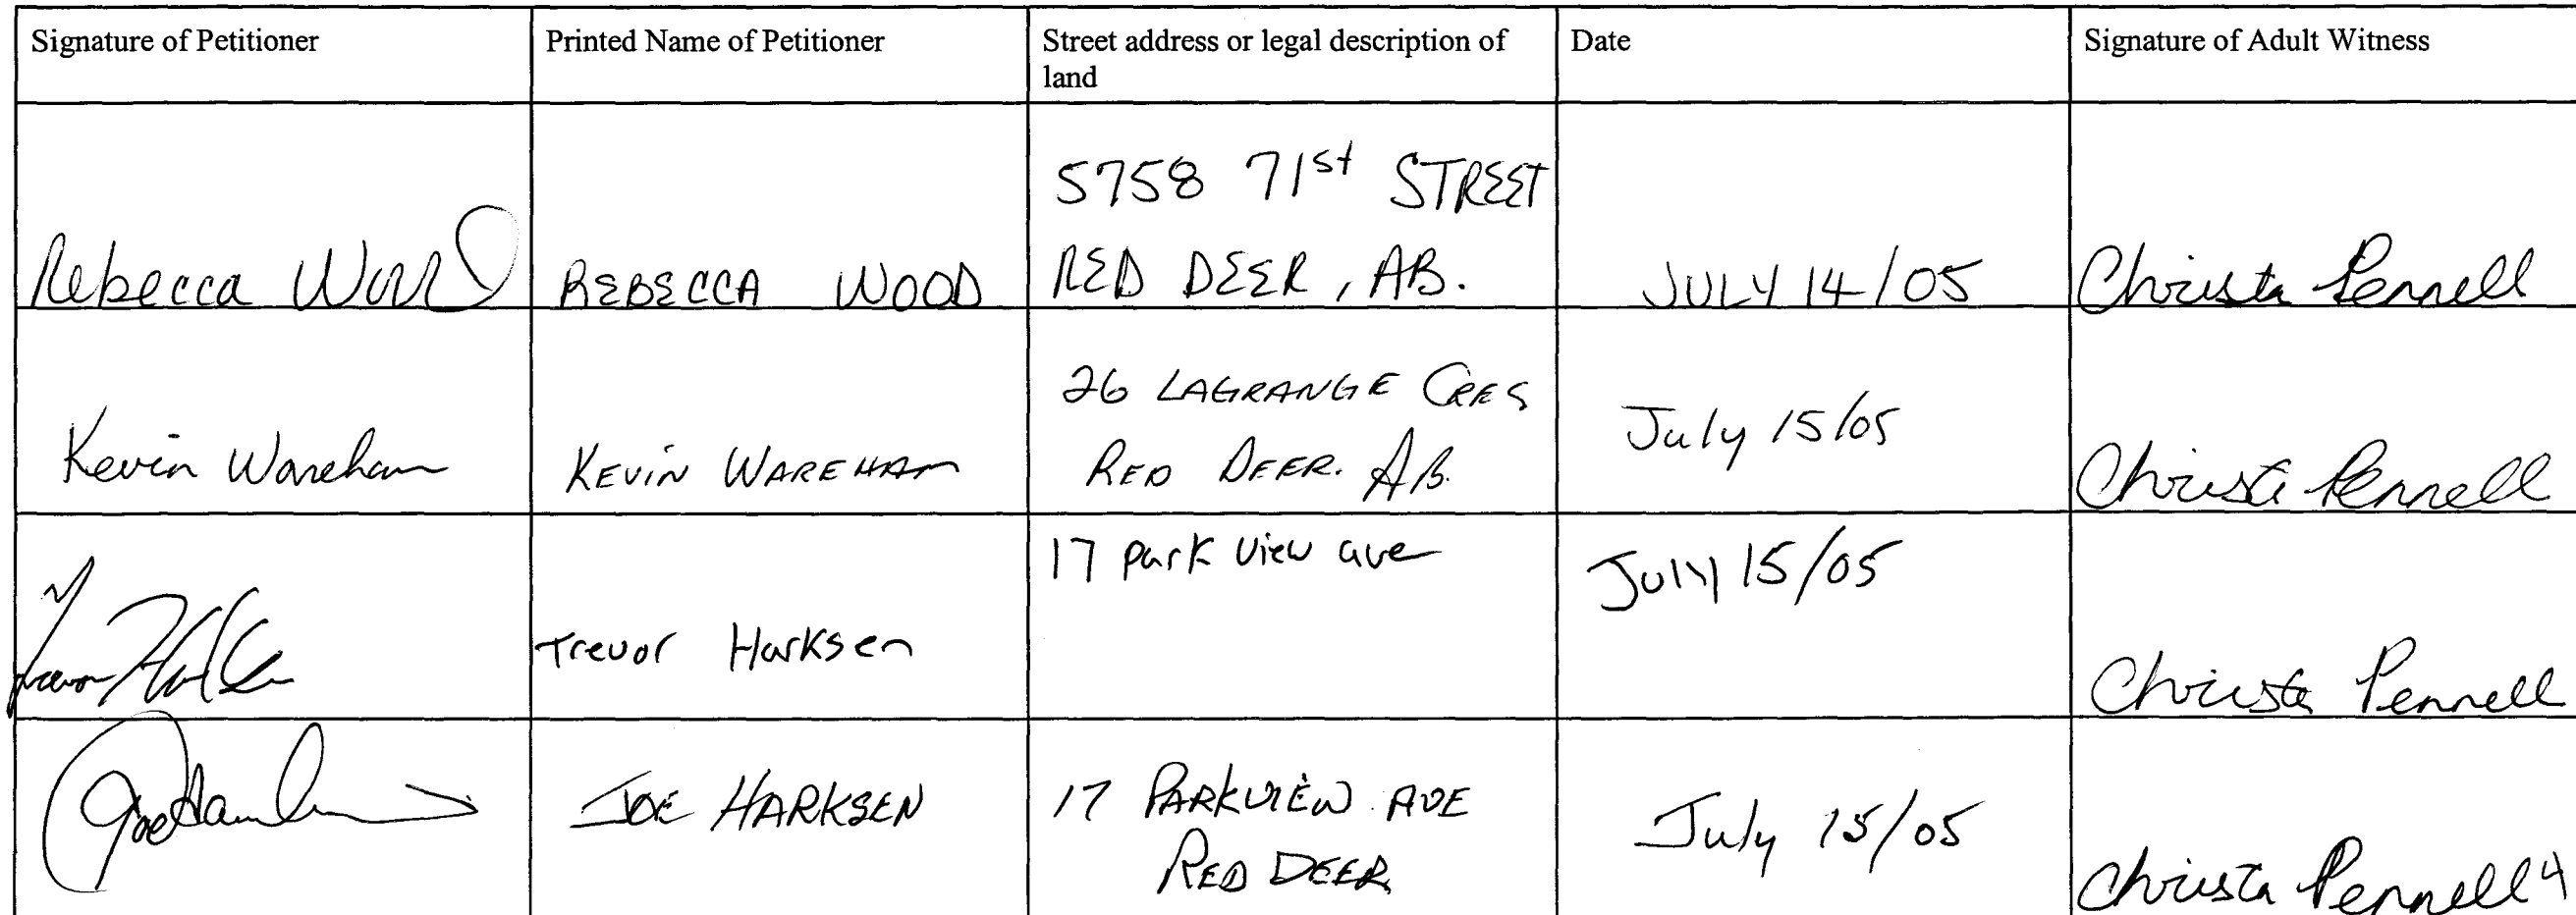 Signature of Petitioner
Printed Name of Petitioner
Street address or legal description of
land
Date
Signature of Adult Witness
Rebecca Wood
REBECCA WOOD
5758 71st STREET
RED DEER, AB.
JULY 14/05
Christa Pennell
Kevin Wareham
KEVIN WAREHAM
26 LAGRANGE CRES
RED DEER. AB.
July 15/05
Christa Pennell
Trevor Harksen
17 park view ave
July 15/05
Christa Pennell
JOE HARKSEN
17 PARKVIEW AVE
RED DEER
July 15/05
Christa Pennell 4